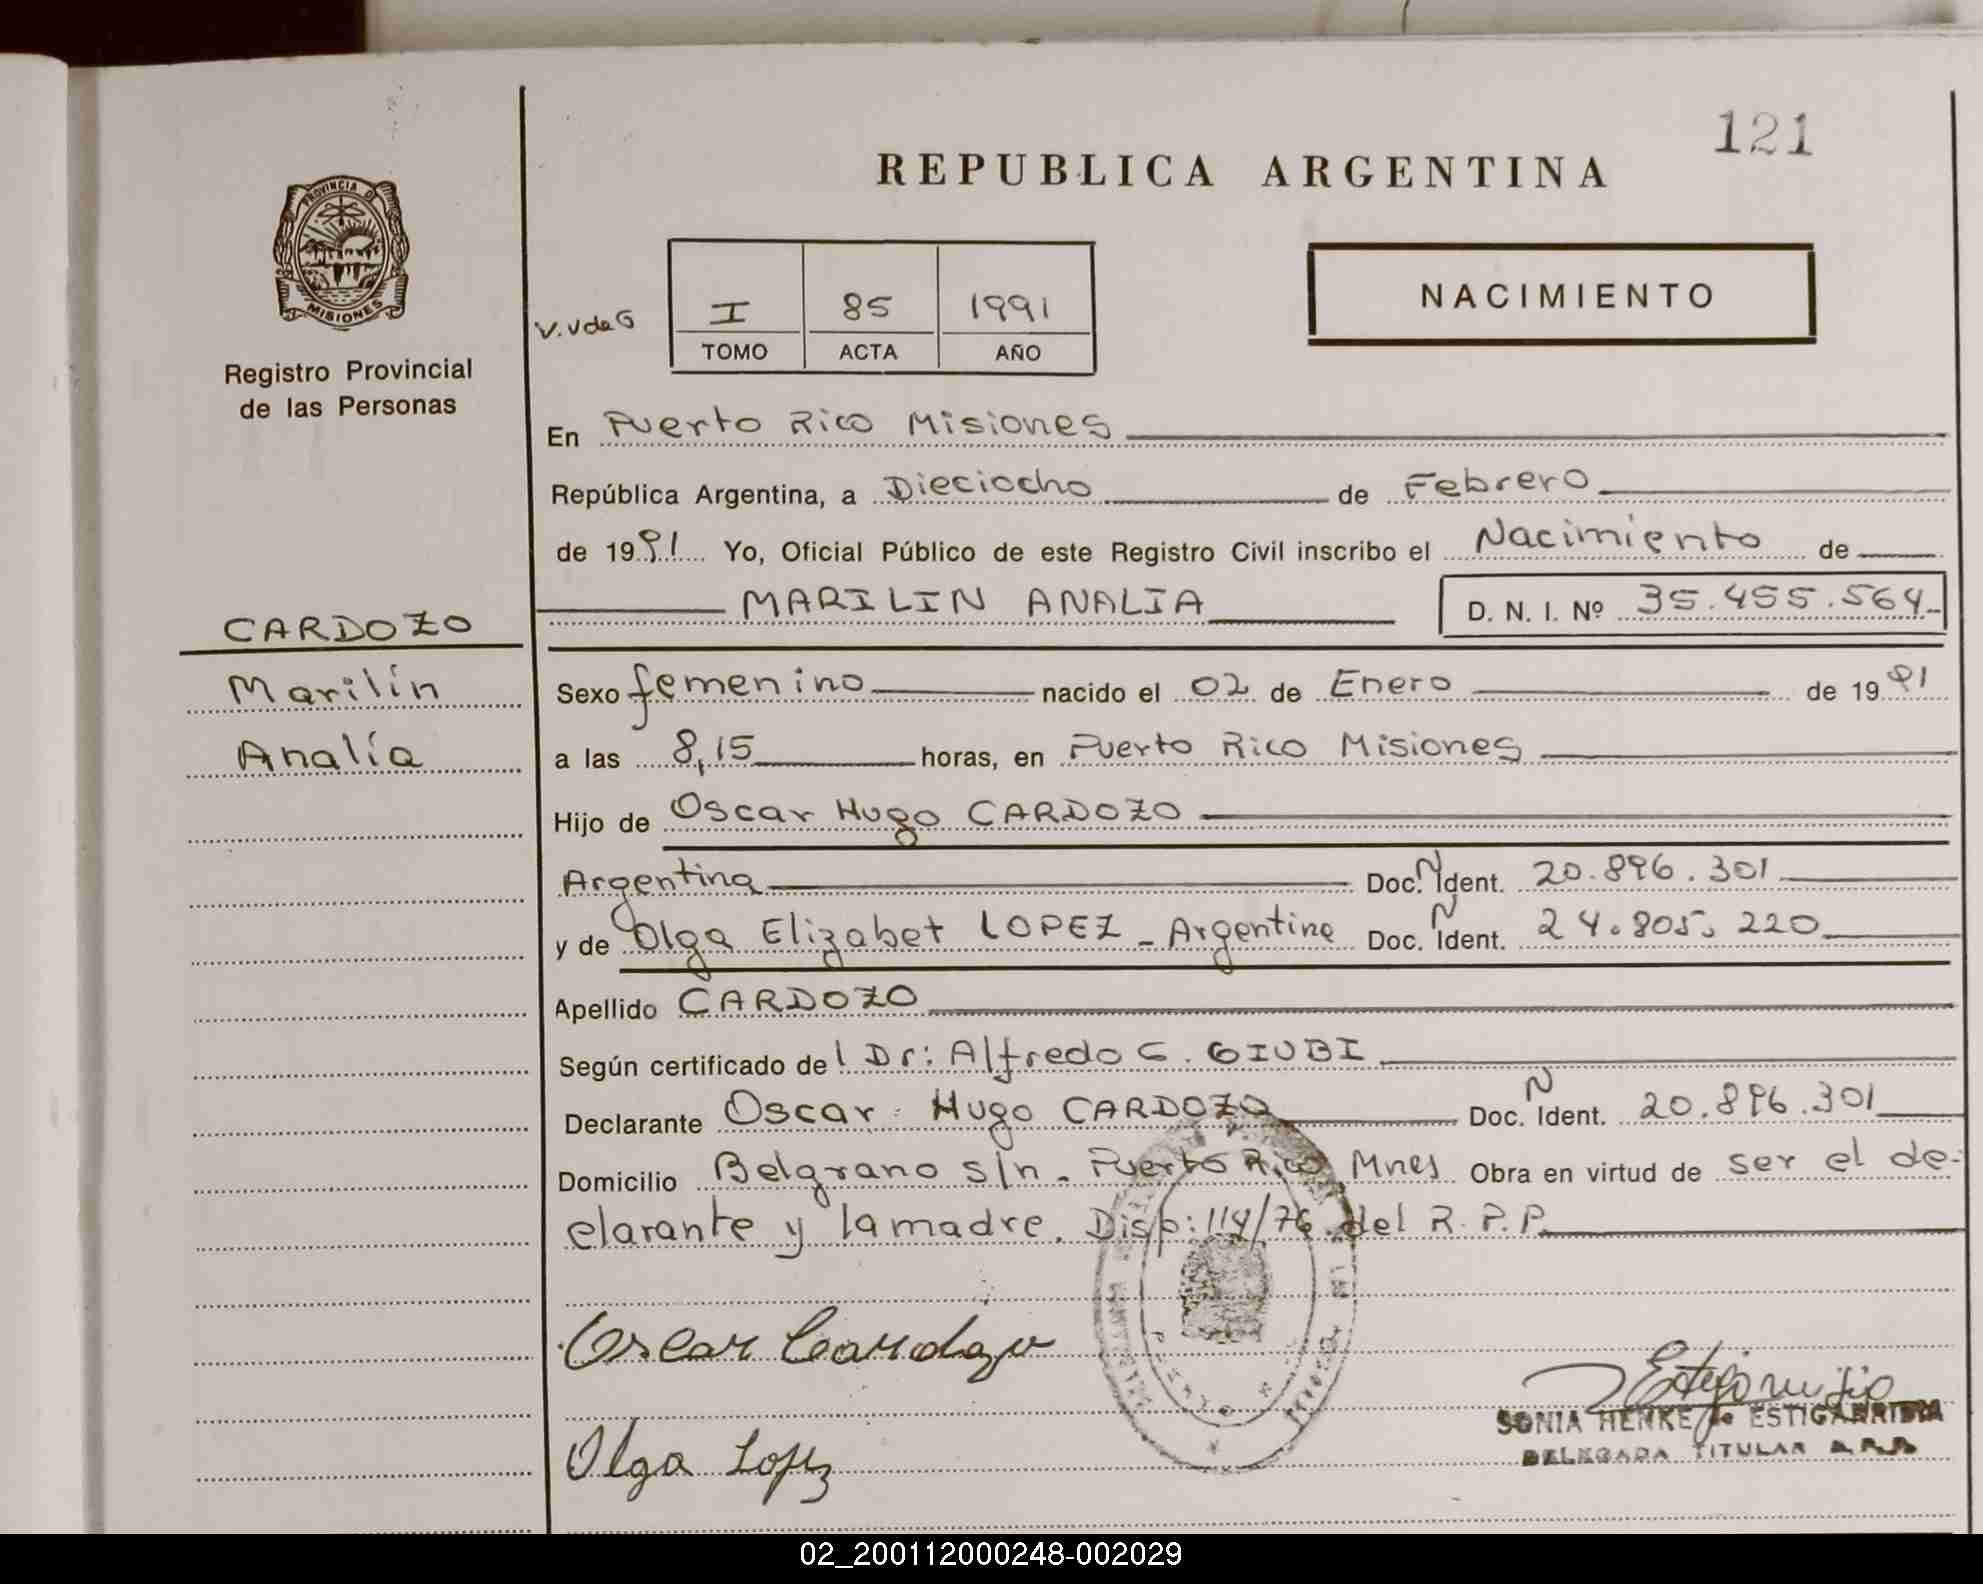 121
REPUBLICA ARGENTINA
PROVINCIA D
MISIONES
Registro Provincial
de las Personas
V.V de G
I 85 1991
TOMO ACTA AÑO
NACIMIENTO
En Puerto Rico Misiones
República Argentina, a Dieciocho de Febrero
de 1991 Yo, Oficial Público de este Registro Civil inscribo el Nacimiento de
MARILIN ANALIA D. N. I. Nº 35.455.564
CARDOZO
Marilín
Analía
Sexo femenino nacido el 02 de Enero de 1991
a las 8,15 horas, en Puerto Rico Misiones
Hijo de Oscar Hugo CARDOZO
Argentina Doc. N Ident. 20.896.301
y de Olga Elizabet LOPEZ - Argentina Doc. N Ident. 24.805.220
Apellido CARDOZO
Según certificado del Dr: Alfredo G. GIUBI
Declarante Oscar Hugo CARDOZO Doc. N Ident. 20.896.301
Domicilio Belgrano s/n - Puerto Rico Mnes Obra en virtud de ser el de-
clarante y la madre. Disp: 114/76 del R.P.P.
Oscar Cardozo
Olga Lopez
SONIA HENKE de ESTIGARRIBIA
DELEGADA TITULAR
02_200112000248-002029